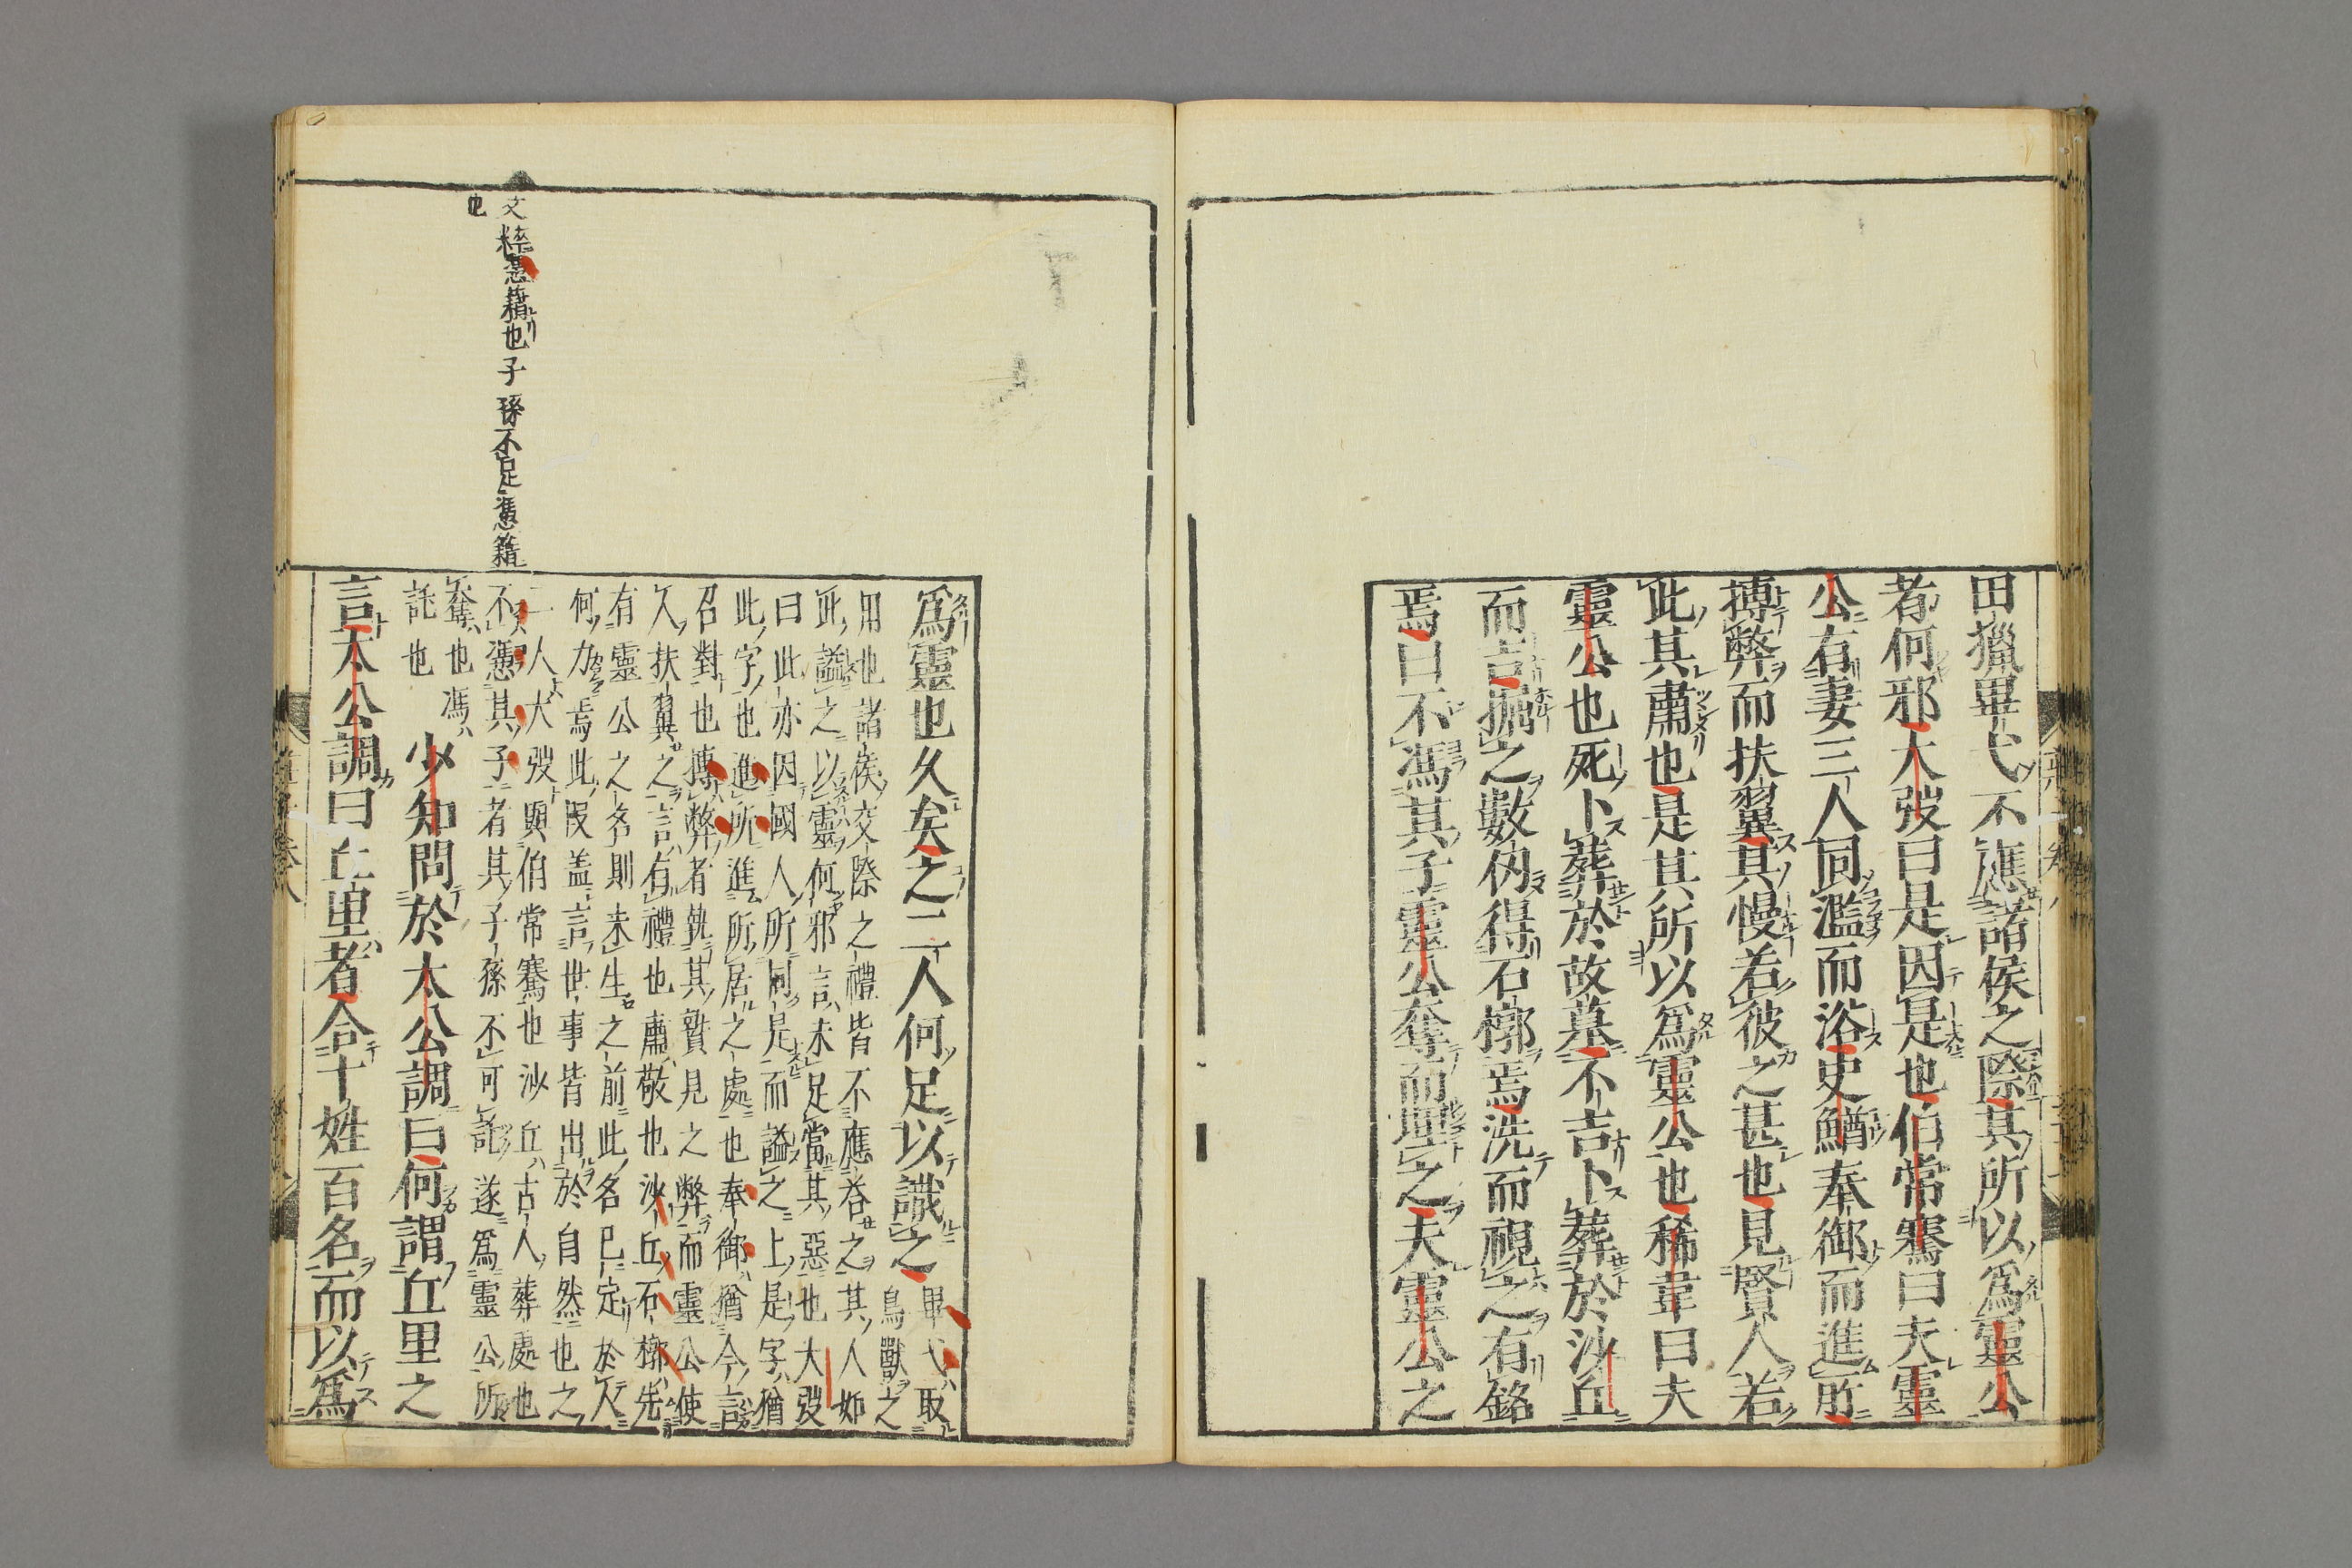 田獵畢弋不應諸侯之際其所以爲靈公
者何邪大弢曰是因是也伯常騫曰夫靈
公有妻三人同濫而浴史鰌奉御而進所
搏弊而扶翼其慢若彼之甚也見賢人若
此其肅也是其所以爲靈公也狶韋曰夫
靈公也死卜葬於故墓不吉卜葬於沙丘
而吉掘之數仭得石槨焉洗而視之有銘
焉曰不馮其子靈公奪而埋之夫靈公之
爲靈也久矣之二人何足以識之
畢弋取
鳥獸之
用也諸侯交際之禮皆不應荅之其人如
此謚之以靈何邪言未足當其惡也大弢
曰此亦因國人所同是而謚之上是字猶
此字也進所進所居之處也奉御猶今言
召對也搏弊者執其贄見之弊而靈公使
人扶翼之言有禮也肅敬也沙丘石槨先
有靈公之名則未生之前此名已定於人
何力焉此段盖言世事皆出於自然也之
二人大弢與伯常騫也沙丘古人葬處也
不憑其子者其子孫不可託遂爲靈公所
奪也馮
託也
文粹憑藉也子孫不足憑藉
也
少知問於太公調曰何謂丘里之
言太公調曰丘里者合十姓百名而以爲